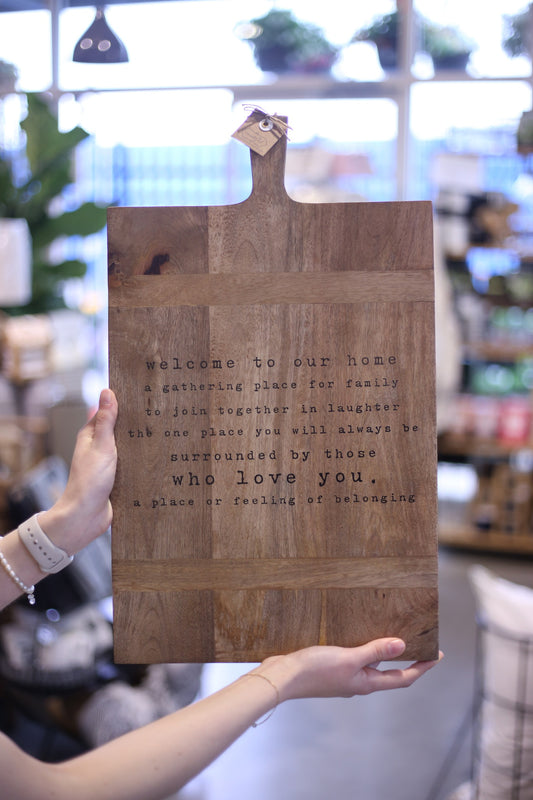 welcome to our home
a gathering place for family
to join together in laughter
the one place you will always be
surrounded by those
who love you.
a place or feeling of belonging